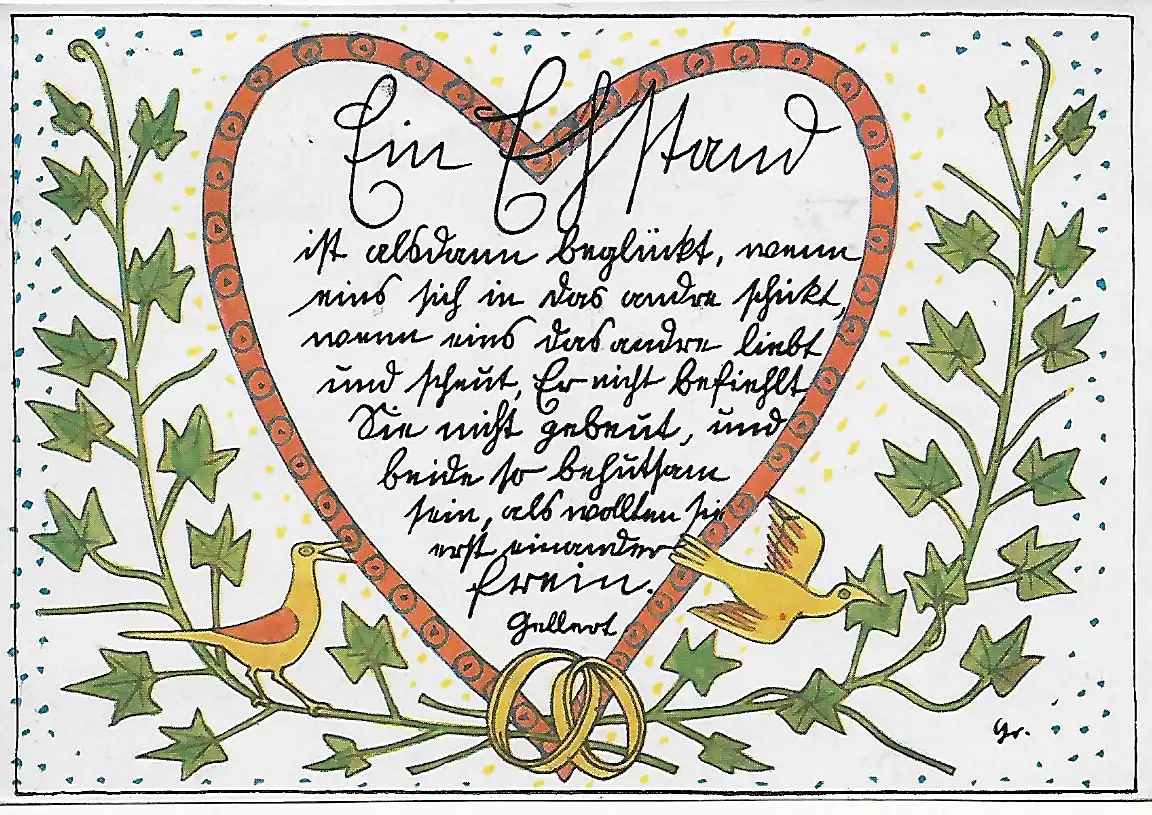 Ein Ehstand
ist alsdann beglückt, wenn
eins sich in das andre schickt,
wenn eins das andre liebt
und scheut, Er nicht befiehlt
Sie nicht gebeut, und
beide so behutsam
sein, als wollten sie
erst einander
frein.
Gellert
Gr.